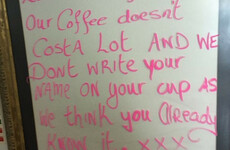 Our Coffee doesn't
Costa Lot AND WE
DONT WRITE your
NAME ON your cup AS
We think you Already
Know it. xxx